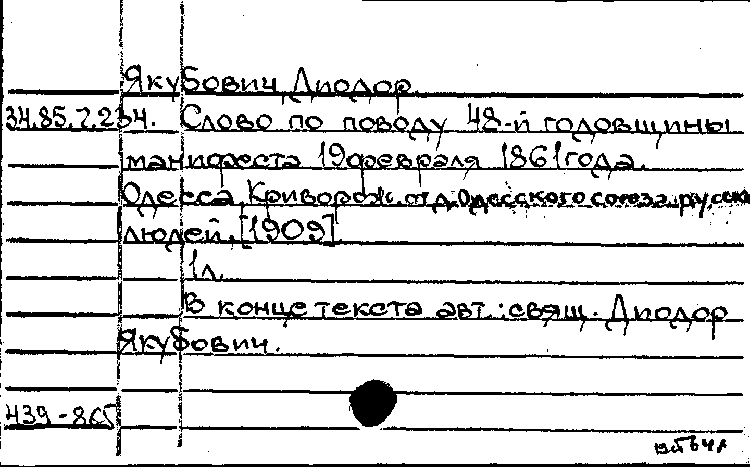 Якубович, Диодор.
34.85.7.234. Слово по поводу 48-й годовщины
манифеста 19 февраля 1861 года.
Одесса, Криворож. отд. Одесского союза русских
людей, [1909].
1 л.
В конце текста авт.: свящ. Диодор
Якубович.
439-865